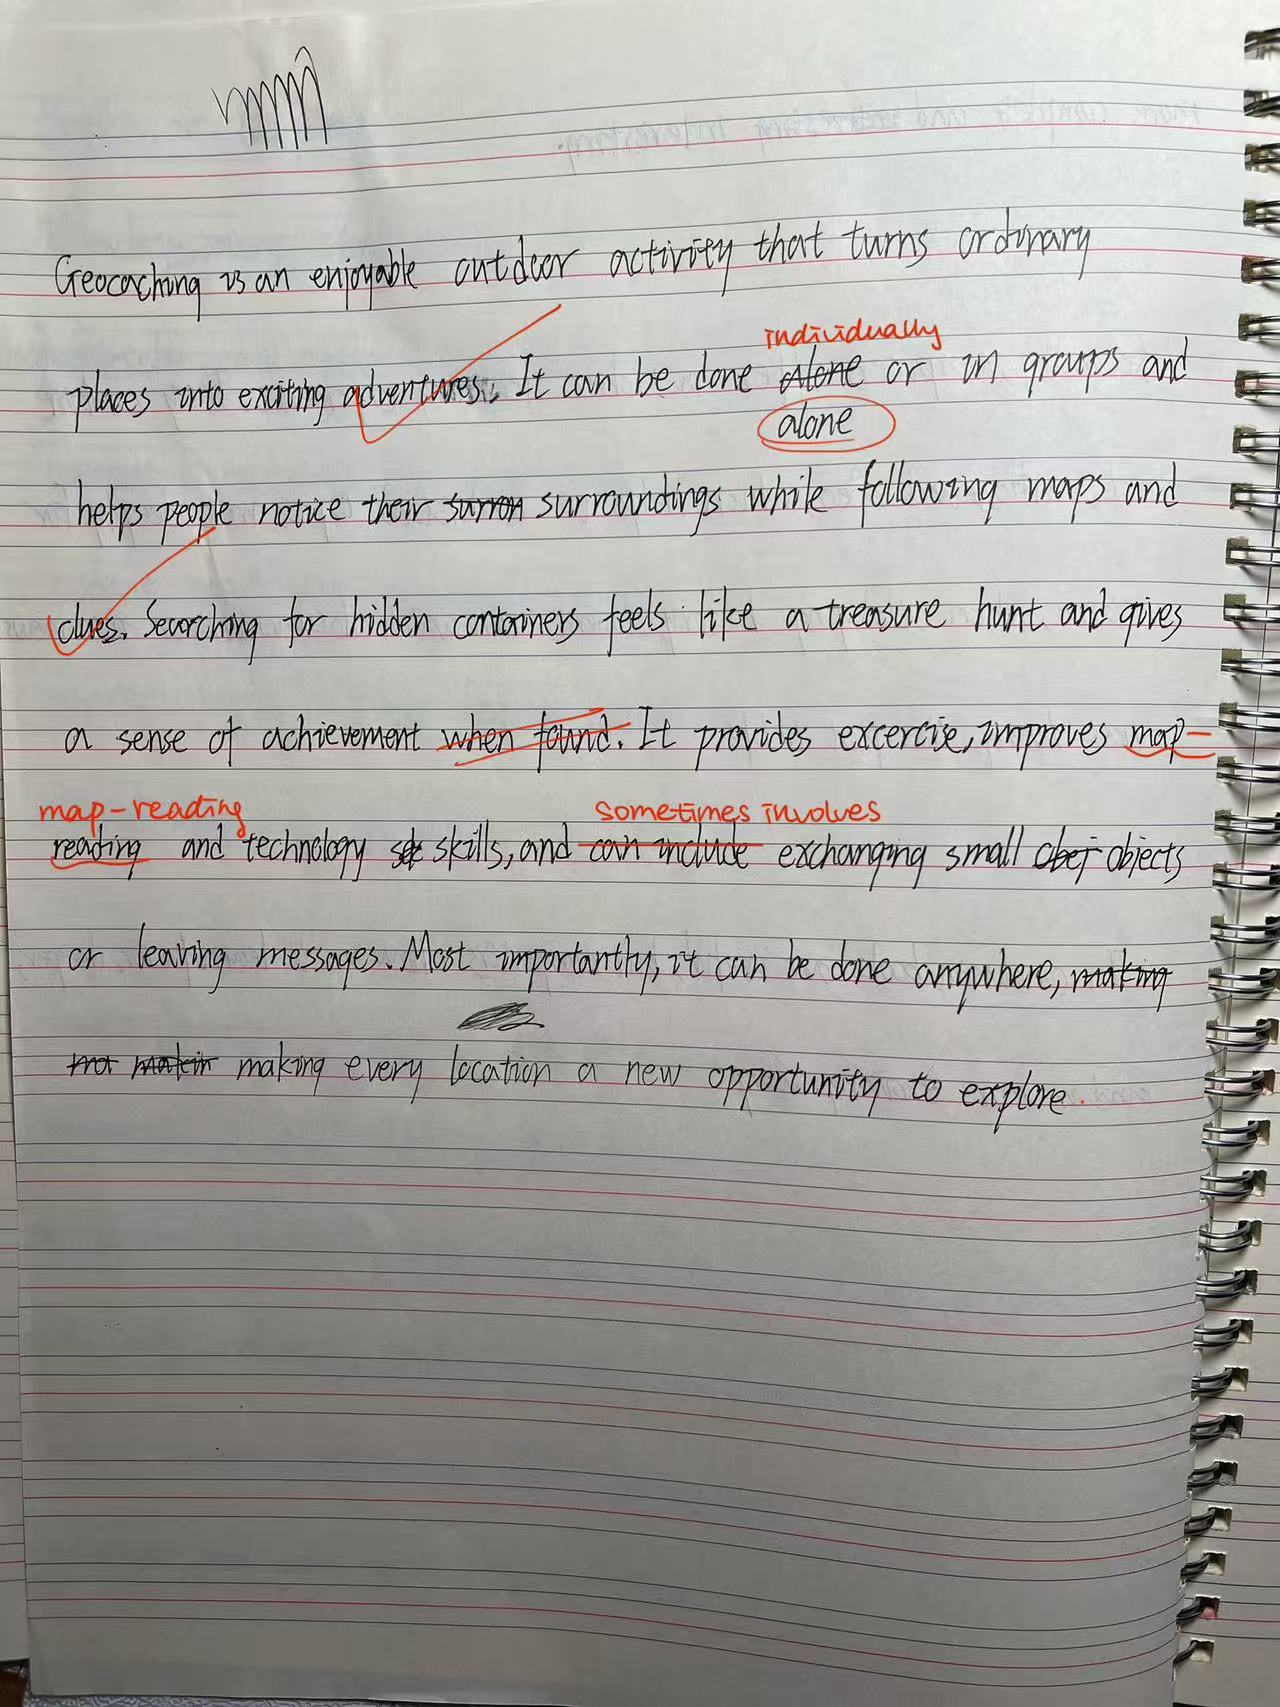 Geocaching is an enjoyable outdoor activity that turns ordinary
individually
places into exciting adventures. It can be done alone or in groups and
alone
helps people notice their surron surroundings while following maps and
clues. Searching for hidden containers feels like a treasure hunt and gives
a sense of achievement when found. It provides excercise, improves map-
map-reading sometimes involves
reading and technology sk skills, and can include exchanging small obej objects
or leaving messages. Most importantly, it can be done anywhere, making
makin making every location a new opportunity to explore.